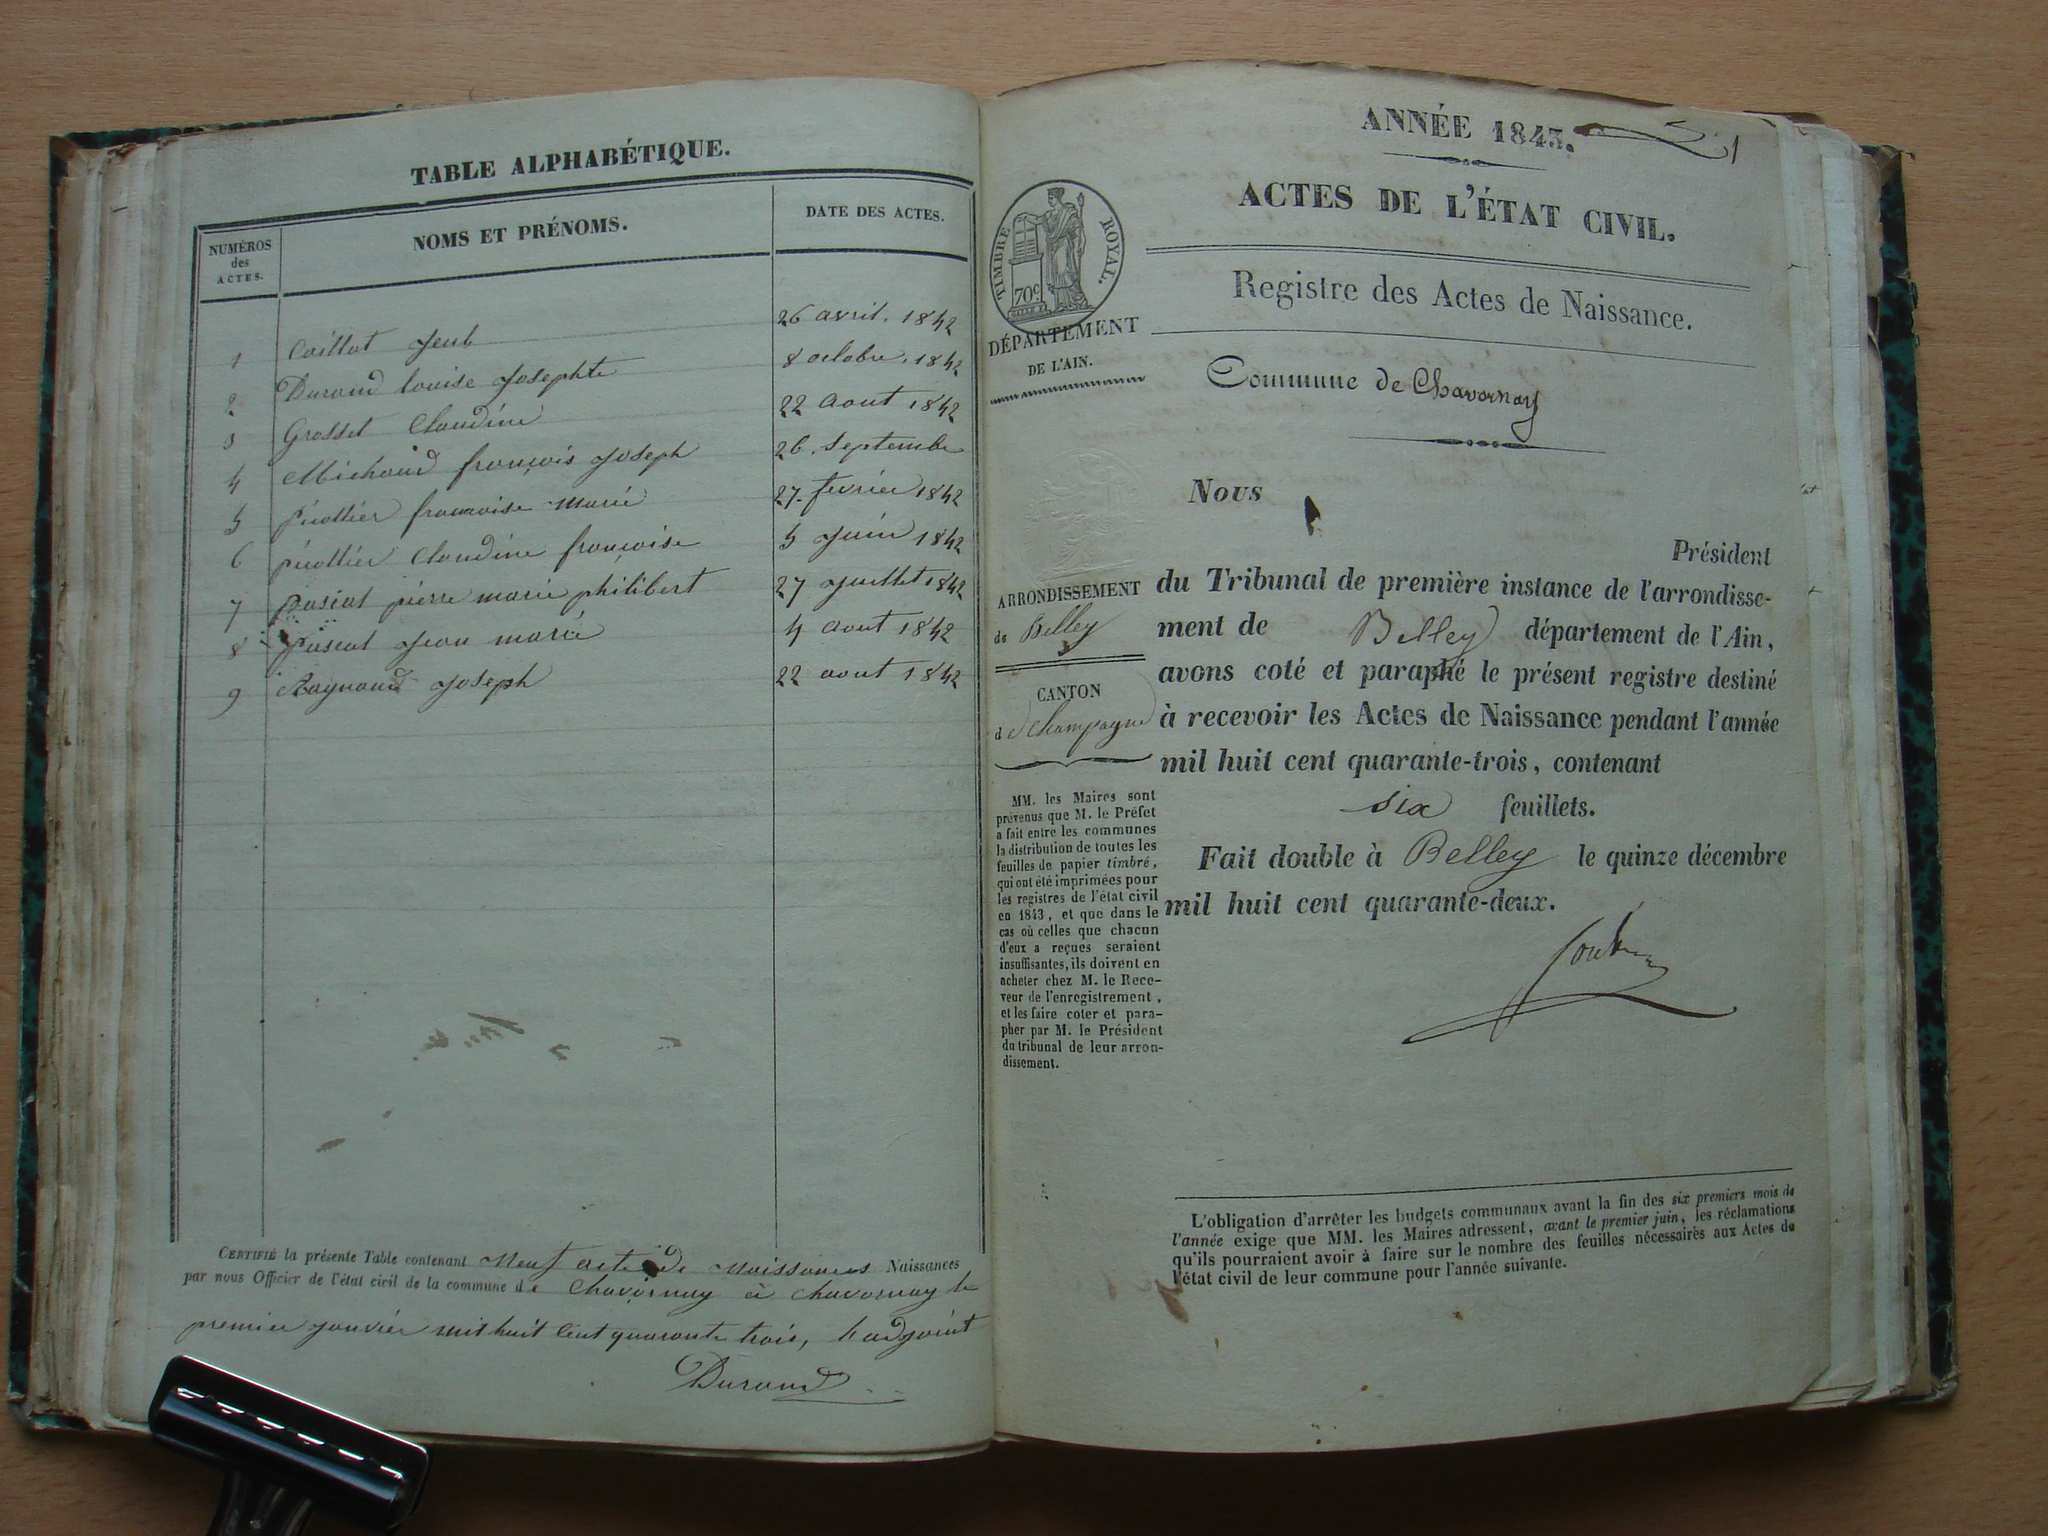 TABLE ALPHABÉTIQUE.
NUMÉROS
des
ACTES.
NOMS ET PRÉNOMS.
DATE DES ACTES.
1 Caillot 26 avril. 1842
2 Durand louise Josephte 8 octobre. 1842
3 Grosset Claudine 22 aout 1842
4 Michaud françois Joseph 26. Septembre
5 picollier francoise marie 27. fevrier 1842
6 picollier Claudine françoise 5 Juin 1842
7 pascat pierre marie philibert 27 Juillet 1842
8 pascat Jean marie 4 aout 1842
9 Raynaud Joseph 22 aout 1842
CERTIFIÉ la présente Table contenant Neuf acte de Naissances Naissances
par nous Officier de l'état civil de la commune de Chavornay à chavornay le
premier janvier mil huit cent quarante trois, l'adjoint
Durand
ANNÉE 1843.
1
ACTES DE L'ÉTAT CIVIL.
Registre des Actes de Naissance.
TIMBRE ROYAL.
70c
DÉPARTEMENT
DE L'AIN.
Commune de Chavornay
ARRONDISSEMENT
de Belley
CANTON
de Champagne
MM. les Maires sont
prévenus que M. le Préfet
a fait entre les communes
la distribution de toutes les
feuilles de papier timbré,
qui ont été imprimées pour
les registres de l'état civil
en 1843, et que dans le
cas où celles que chacun
d'eux a reçues seraient
insuffisantes, ils doivent en
acheter chez M. le Rece-
veur de l'enregistrement,
et les faire coter et para-
pher par M. le Président
du tribunal de leur arron-
dissement.
Nous
Président
du Tribunal de première instance de l'arrondisse-
ment de Belley département de l'Ain,
avons coté et paraphé le présent registre destiné
à recevoir les Actes de Naissance pendant l'année
mil huit cent quarante-trois, contenant
six feuillets.
Fait double à Belley le quinze décembre
mil huit cent quarante-deux.
L'obligation d'arrêter les budgets communaux avant la fin des six premiers mois de
l'année exige que MM. les Maires adressent, avant le premier juin, les réclamations
qu'ils pourraient avoir à faire sur le nombre des feuilles nécessaires aux Actes de
l'état civil de leur commune pour l'année suivante.